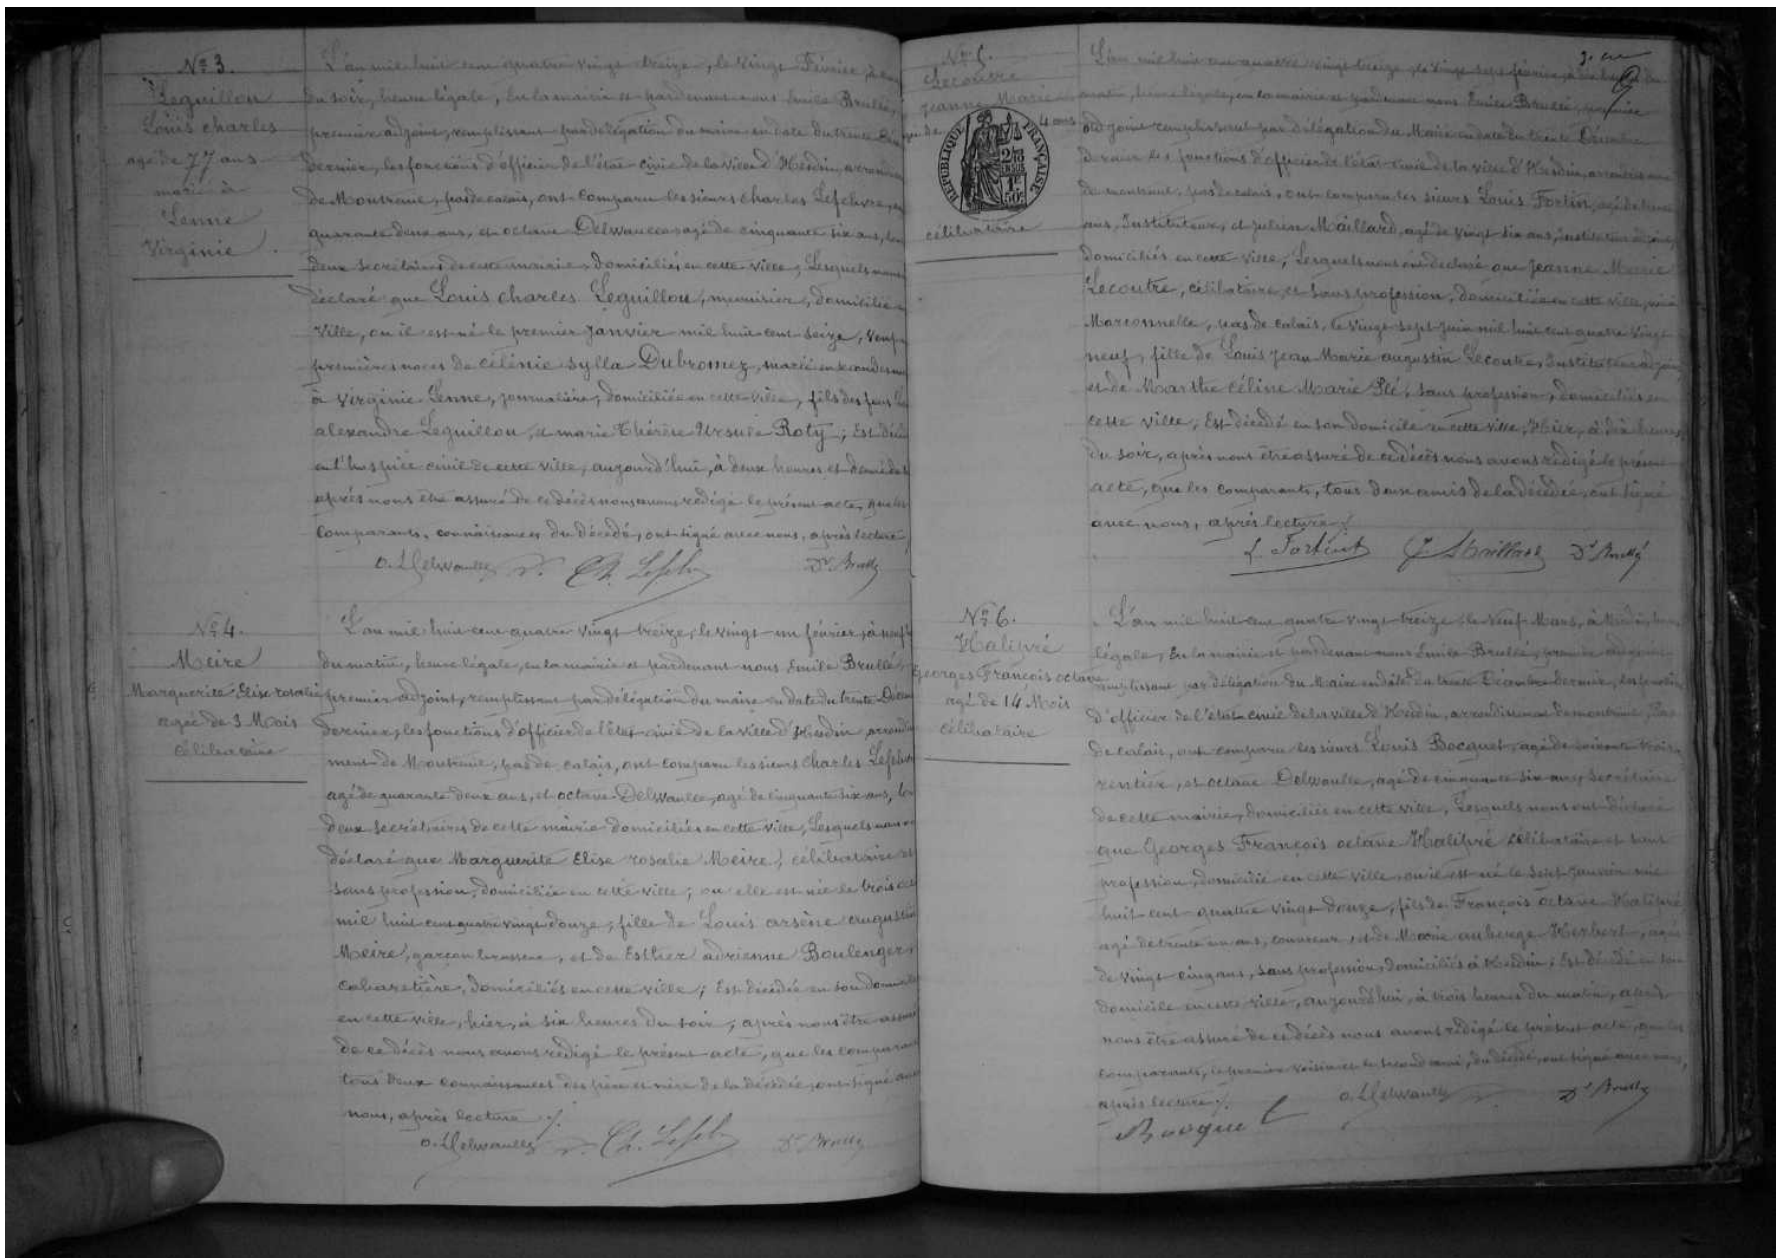 Nº 3.
Leguillou
Louis charles
agé de 77 ans
marié à
Senne
Virginie
L'an mil huit cent quatre vingt treize, le vingt Février,
du soir, heure légale, En la mairie et pardevant nous Emile Brullé,
premier adjoint, remplissant par délégation du maire en date du trente
dernier, les fonctions d'officier de l'état civil de la ville d'Hesdin,
de Montreuil, pas de calais, ont comparu les sieurs charles Lefebvre,
quarante deux ans, et octave Delwaulle agé de cinquante six ans,
deux secrétaires de cette mairie, domiciliés en cette ville, Lesquels nous
déclaré que Louis charles Leguillou, menuisier, domicilié
ville, ou il est né le premier Janvier mil huit cent seize, veuf
premières noces de célénie sylla Dubromez, marié en secondes
à Virginie Senne, journalière, domiciliée en cette ville, fils des feus
alexandre Leguillou, et marie Thérèse Ursule Roty; Est
en l'hospice civil de cette ville, aujourd'hui, à deux heures et demie
après nous être assuré de ce décès nous avons rédigé le présent acte, que les
comparants, connaissances du décédé, ont signé avec nous, après lecture
O. Delwaulle Ch. Lefeb Dr Brullé
Nº 4.
Meire
Marguerite Elise rosalie
agée de 3 Mois
célibataire
L'an mil huit cent quatre vingt treize, le vingt un février, à neuf
du matin, heure légale, en la mairie et pardevant nous Emile Brullé,
premier adjoint, remplissant par délégation du maire en date du trente
dernier, les fonctions d'officier de l'état civil de la ville d'Hesdin,
ment de Montreuil, pas de calais, ont comparu les sieurs charles Lefebvre
agé de quarante deux ans, et octave Delwaulle, agé de cinquante six ans,
deux secrétaires de cette mairie domiciliés en cette ville, Lesquels nous
déclaré que Marguerite Elise rosalie Meire, célibataire et
sans profession, domiciliée en cette ville; ou elle est née le trois
mil huit cent quatre vingt douze, fille de Louis arsène augustin
Meire, garçon brasseur, et de Esther adrienne Boulenger,
cabaretière, domiciliés en cette ville; Est décédée en son domicile
en cette ville, hier, à six heures du soir, après nous être assuré
de ce décès nous avons rédigé le présent acte, que les comparants
tous deux connaissances des père et mère de la décédée, ont signé
nous, après lecture ./.
O. Delwaulle Ch. Lefeb Dr Brullé
Nº 5.
Lecoutre
Jeanne Marie
4 ans
RÉPUBLIQUE FRANÇAISE
2/10 EN SUS
1F 50C
célibataire
L'an mil huit cent quatre vingt treize, le vingt sept février, à dix heures du
matin, heure légale, en la mairie et pardevant nous Emile Brullé, premier
adjoint remplissant par délégation du Maire en date du trente Décembre
dernier les fonctions d'officier de l'état civil de la ville d'Hesdin,
de montreuil, pas de calais, ont comparu les sieurs Louis Fortin, agé de
ans, Instituteur, et Julien Maillard, agé de vingt six ans, instituteur adjoint,
domiciliés en cette ville, Lesquels nous ont déclaré que Jeanne Marie
Lecoutre, célibataire, et sans profession, domiciliée en cette ville, née à
Marconnelle, pas de calais, le vingt sept juin mil huit cent quatre vingt
neuf, fille de Louis Jean Marie augustin Lecoutre, Instituteur adjoint
et de Marthe Céline Marie Plé, sans profession, domiciliés en
cette ville, Est décédé en son domicile en cette ville, Hier, à dix heures
du soir, après nous être assuré de ce décès nous avons rédigé le présent
acte, que les comparants, tous deux amis de la décédée, ont signé
avec nous, après lecture ./.
L. Fortin J. Maillard Dr Brullé
Nº 6.
Halipré
Georges François octave
agé de 14 Mois
célibataire
L'an mil huit cent quatre vingt treize, le Neuf Mars, à Midi, heure
légale, En la mairie et pardevant nous Emile Brullé, premier adjoint
remplissant par délégation du Maire en date du trente Décembre dernier, les fonctions
d'officier de l'état civil de la ville d'Hesdin, arrondissement de montreuil, Pas
de calais, ont comparu les sieurs Louis Bocquet, agé de soixante trois
rentier, et octave Delwaulle, agé de cinquante six ans, secrétaire
de cette mairie, domiciliés en cette ville, Lesquels nous ont déclaré
que Georges François octave Halipré célibataire et sans
profession, domicilié en cette ville, ou il est né le sept Janvier mil
huit cent quatre vingt douze, fils de François octave Halipré
agé de trente un ans, couvreur, et de Marie Herbert, agée
de vingt cinq ans, sans profession, domiciliés à Hesdin; Est décédé en son
domicile en cette ville, aujourd'hui, à trois heures du matin, après
nous être assuré de ce décès nous avons rédigé le présent acte, que les
comparants, le premier voisin et le second ami, du décédé, ont signé avec nous,
après lecture ./.
Bocquet O. Delwaulle Dr Brullé